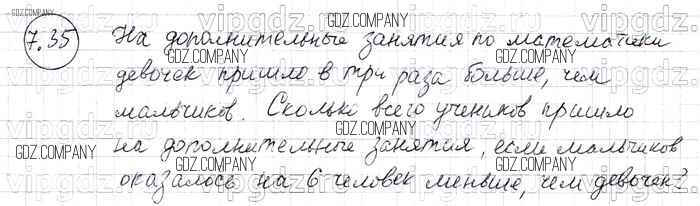 GDZ.COMPANY
7.35 На дополнительные занятия по математики
девочек пришло в три раза больше, чем
мальчиков. Сколько всего учеников пришло
на дополнительные занятия, если мальчиков
оказалось на 6 человек меньше, чем девочек?
GDZ.COMPANY
GDZ.COMPANY
GDZ.COMPANY
GDZ.COMPANY
GDZ.COMPANY
GDZ.COMPANY
GDZ.COMPANY
vipgdz.ru
vipgdz.ru
vipgdz.ru